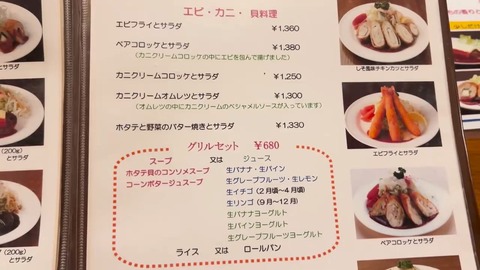 エビ・カニ・貝料理
エビフライとサラダ ￥1.360
ペアコロッケとサラダ ￥1.380
（カニクリームコロッケの中にエビを包んで揚げました）
カニクリームコロッケとサラダ ￥1.250
カニクリームオムレツとサラダ ￥1.300
（オムレツの中にカニクリームのベシャメルソースが入っています）
ホタテと野菜のバター焼きとサラダ ￥1.330
グリルセット ￥680
スープ 又は ジュース
ホタテ貝のコンソメスープ
コーンポタージュスープ
生バナナ・生パイン
生グレープフルーツ・生レモン
生イチゴ（２月頃〜４月頃）
生リンゴ（９月〜１２月）
生バナナヨーグルト
生パインヨーグルト
生グレープフルーツヨーグルト
ライス 又は ロールパン
とサラダ
(200g)
とサラダ
(200g)
とサラダ
しそ風味チキンカツとサラダ
エビフライとサラダ
ペアコロッケとサラダ